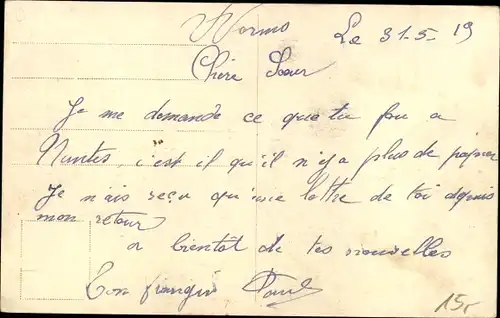 Worms
Le 31-5-19
Chère Soeur
Je me demande ce que tu fou a
Nantes, c'est il qu'il n'y a plus de papier
Je n'ais reçu qu'une lettre de toi depuis
mon retour
a bientôt de tes nouvelles
Ton frangin Paul
15r